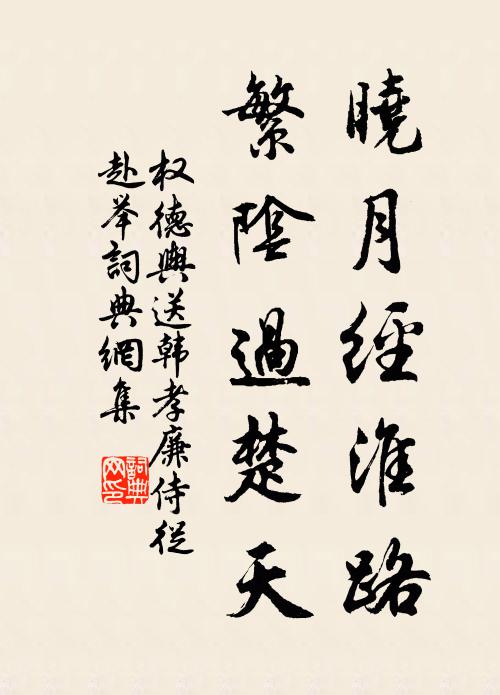 曉月經淮路
繁陰過楚天
权德輿送韩孝廉侍從
赴举詞典網集
詞典网印